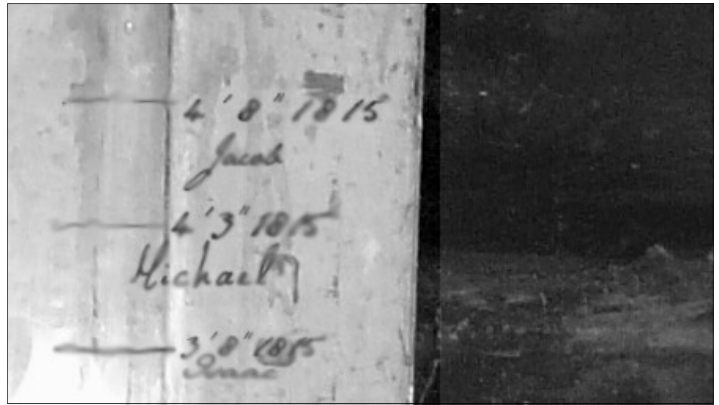 4'8" 1815
Jacob
4'3" 1815
Michael
3'8" 1815
Isaac